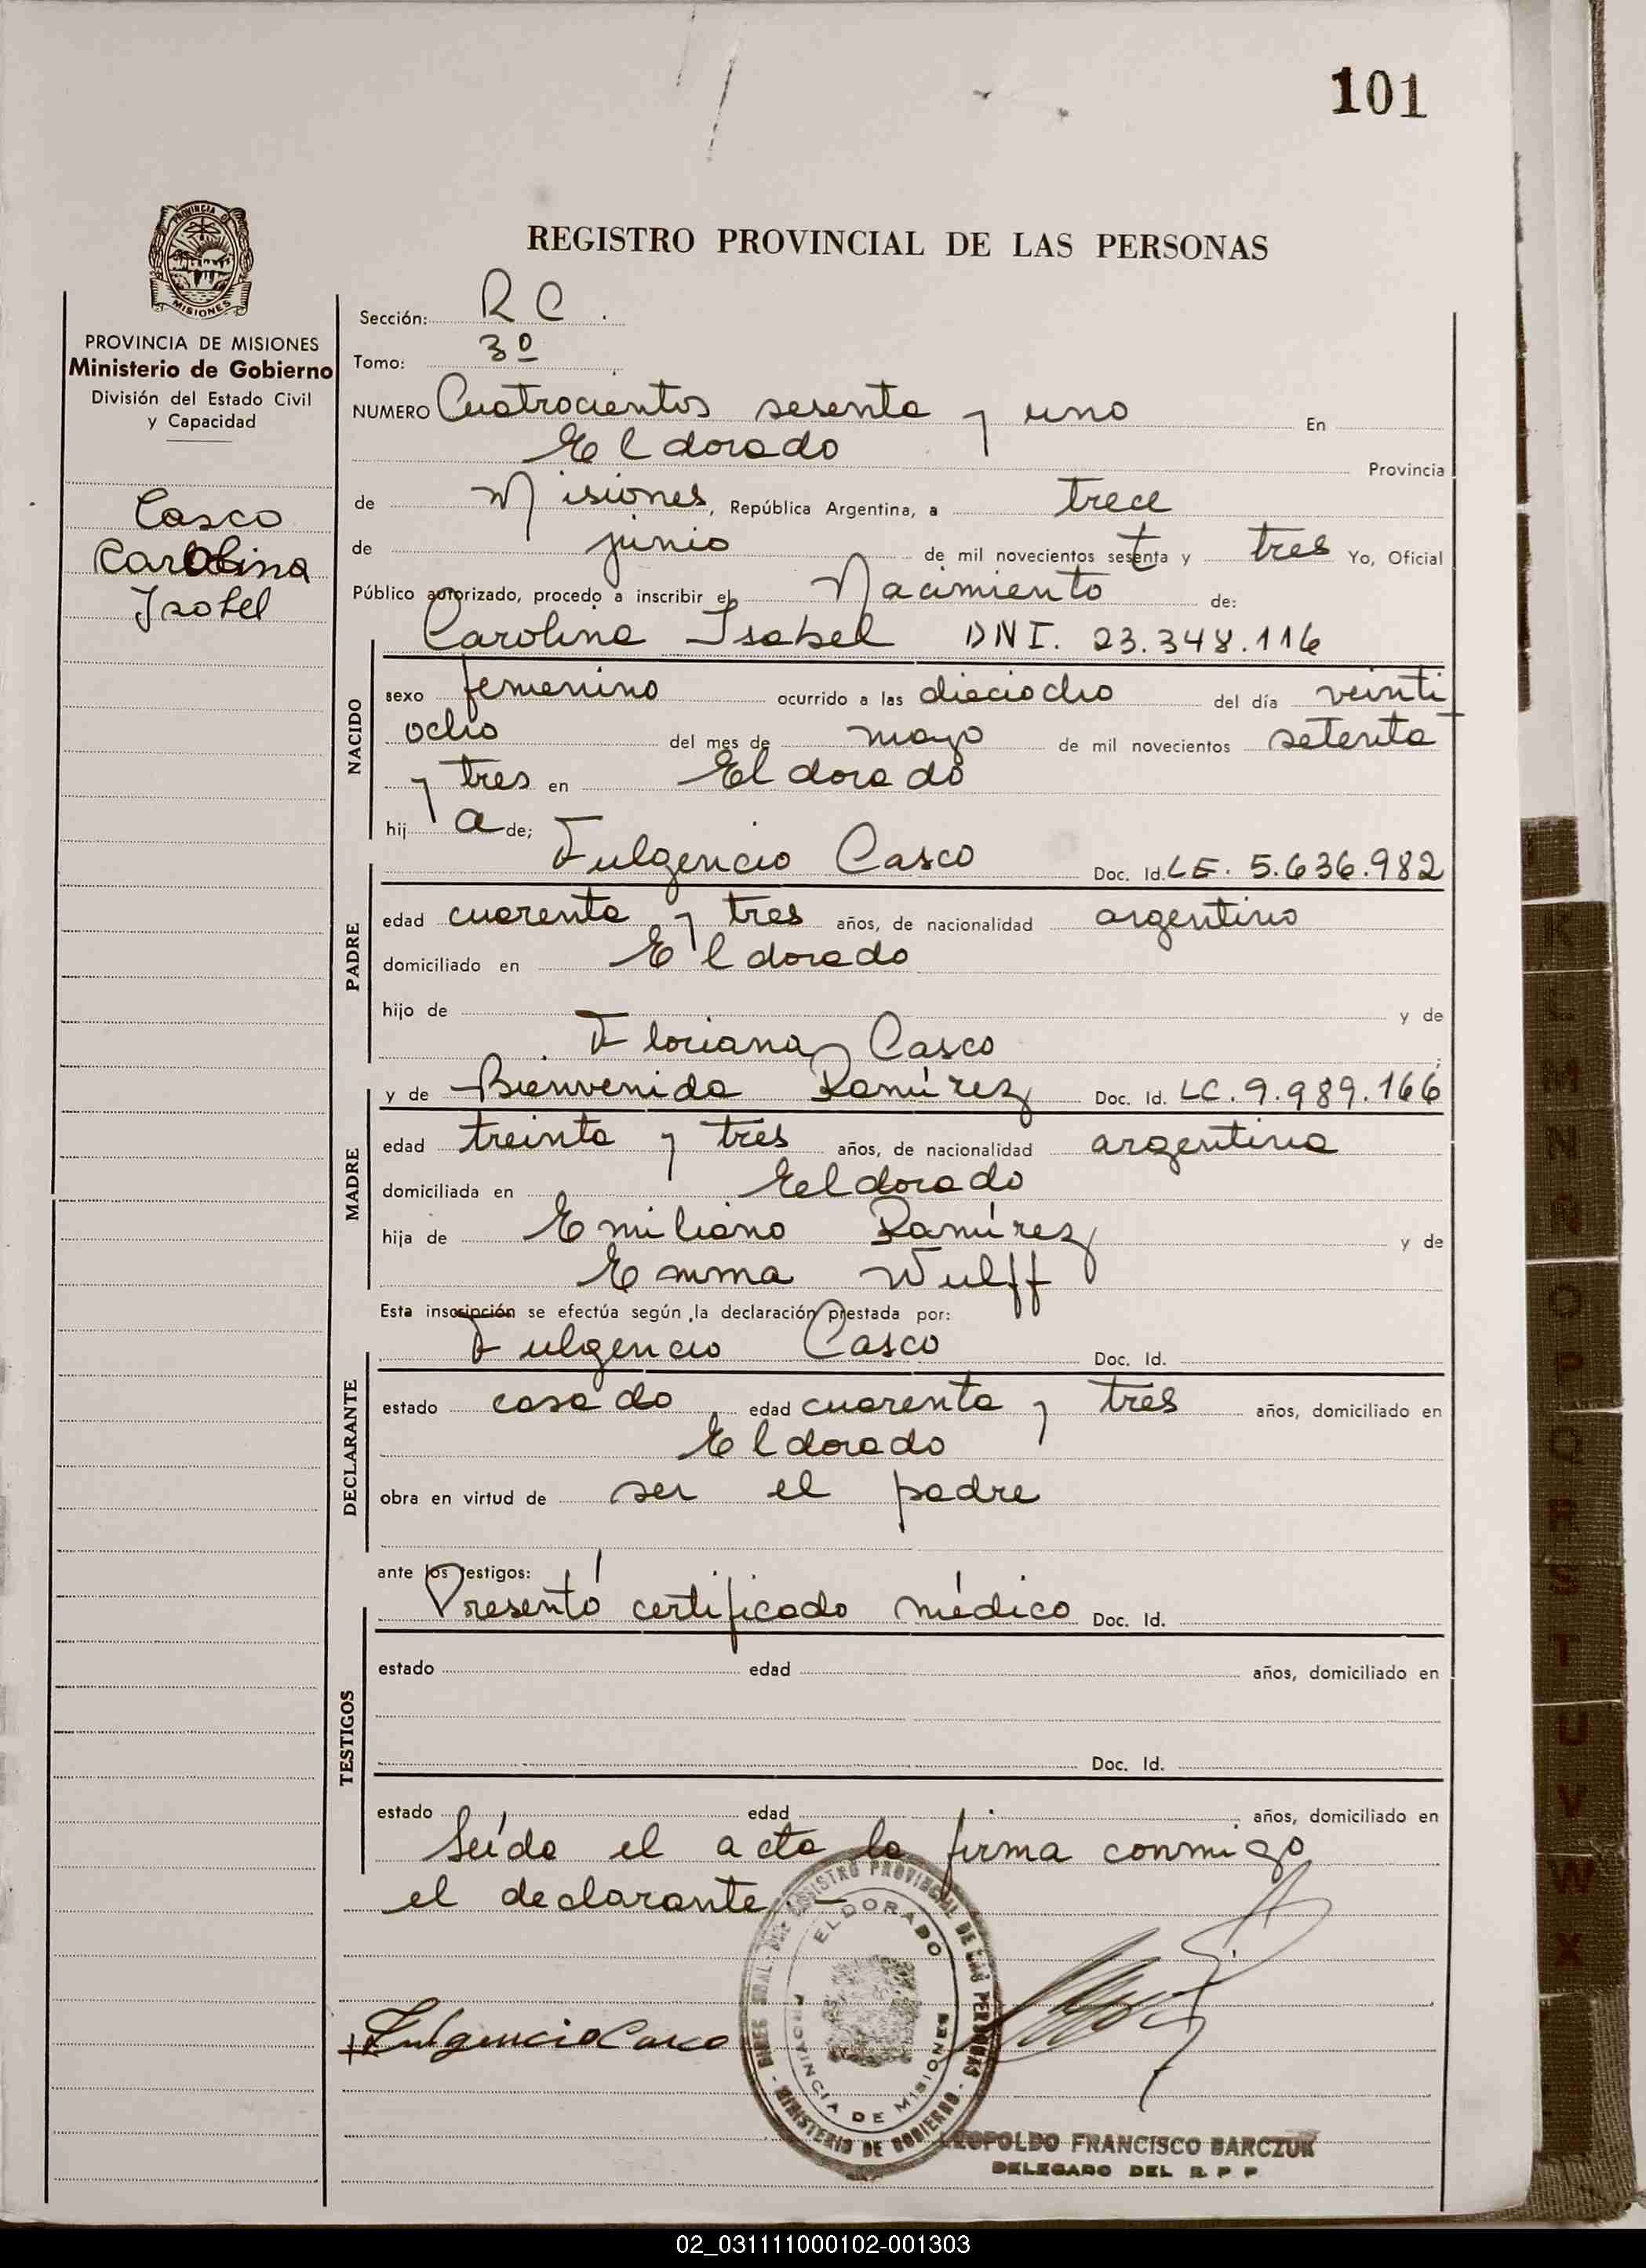 101
PROVINCIA DE
MISIONES
REGISTRO PROVINCIAL DE LAS PERSONAS
PROVINCIA DE MISIONES
Ministerio de Gobierno
División del Estado Civil
y Capacidad
Casco
Carolina
Isabel
Sección: R C.
Tomo: 3º
NUMERO Cuatrocientos sesenta y uno En
Eldorado Provincia
de Misiones, República Argentina, a trece
de junio de mil novecientos setenta y tres Yo, Oficial
Público autorizado, procedo a inscribir el Nacimiento de:
Carolina Isabel DNI. 23.348.116
NACIDO
sexo femenino ocurrido a las dieciocho del día veinti
ocho del mes de mayo de mil novecientos setenta
y tres en Eldorado
hij a de;
Fulgencio Casco Doc. Id. LE. 5.636.982
PADRE
edad cuarenta y tres años, de nacionalidad argentino
domiciliado en Eldorado
hijo de y de
Floriana Casco
y de Bienvenida Ramírez Doc. Id. LC. 9.989.166
MADRE
edad treinta y tres años, de nacionalidad argentina
domiciliada en Eldorado
hija de Emiliano Ramírez y de
Emma Wulff
Esta inscripción se efectúa según la declaración prestada por:
Fulgencio Casco Doc. Id.
DECLARANTE
estado casado edad cuarenta y tres años, domiciliado en
Eldorado
obra en virtud de ser el padre
ante los testigos:
Presentó certificado médico Doc. Id.
TESTIGOS
estado edad años, domiciliado en
Doc. Id.
estado edad años, domiciliado en
Leída el acta la firma conmigo
el declarante. -
REGISTRO PROVINCIAL DE LAS PERSONAS
ELDORADO
PROVINCIA DE MISIONES
MINISTERIO DE GOBIERNO
Fulgencio Casco
LEOPOLDO FRANCISCO BARCZUK
DELEGADO DEL R P P
K
L
M
N
O
P
Q
R
S
T
U
V
W
X
02_031111000102-001303